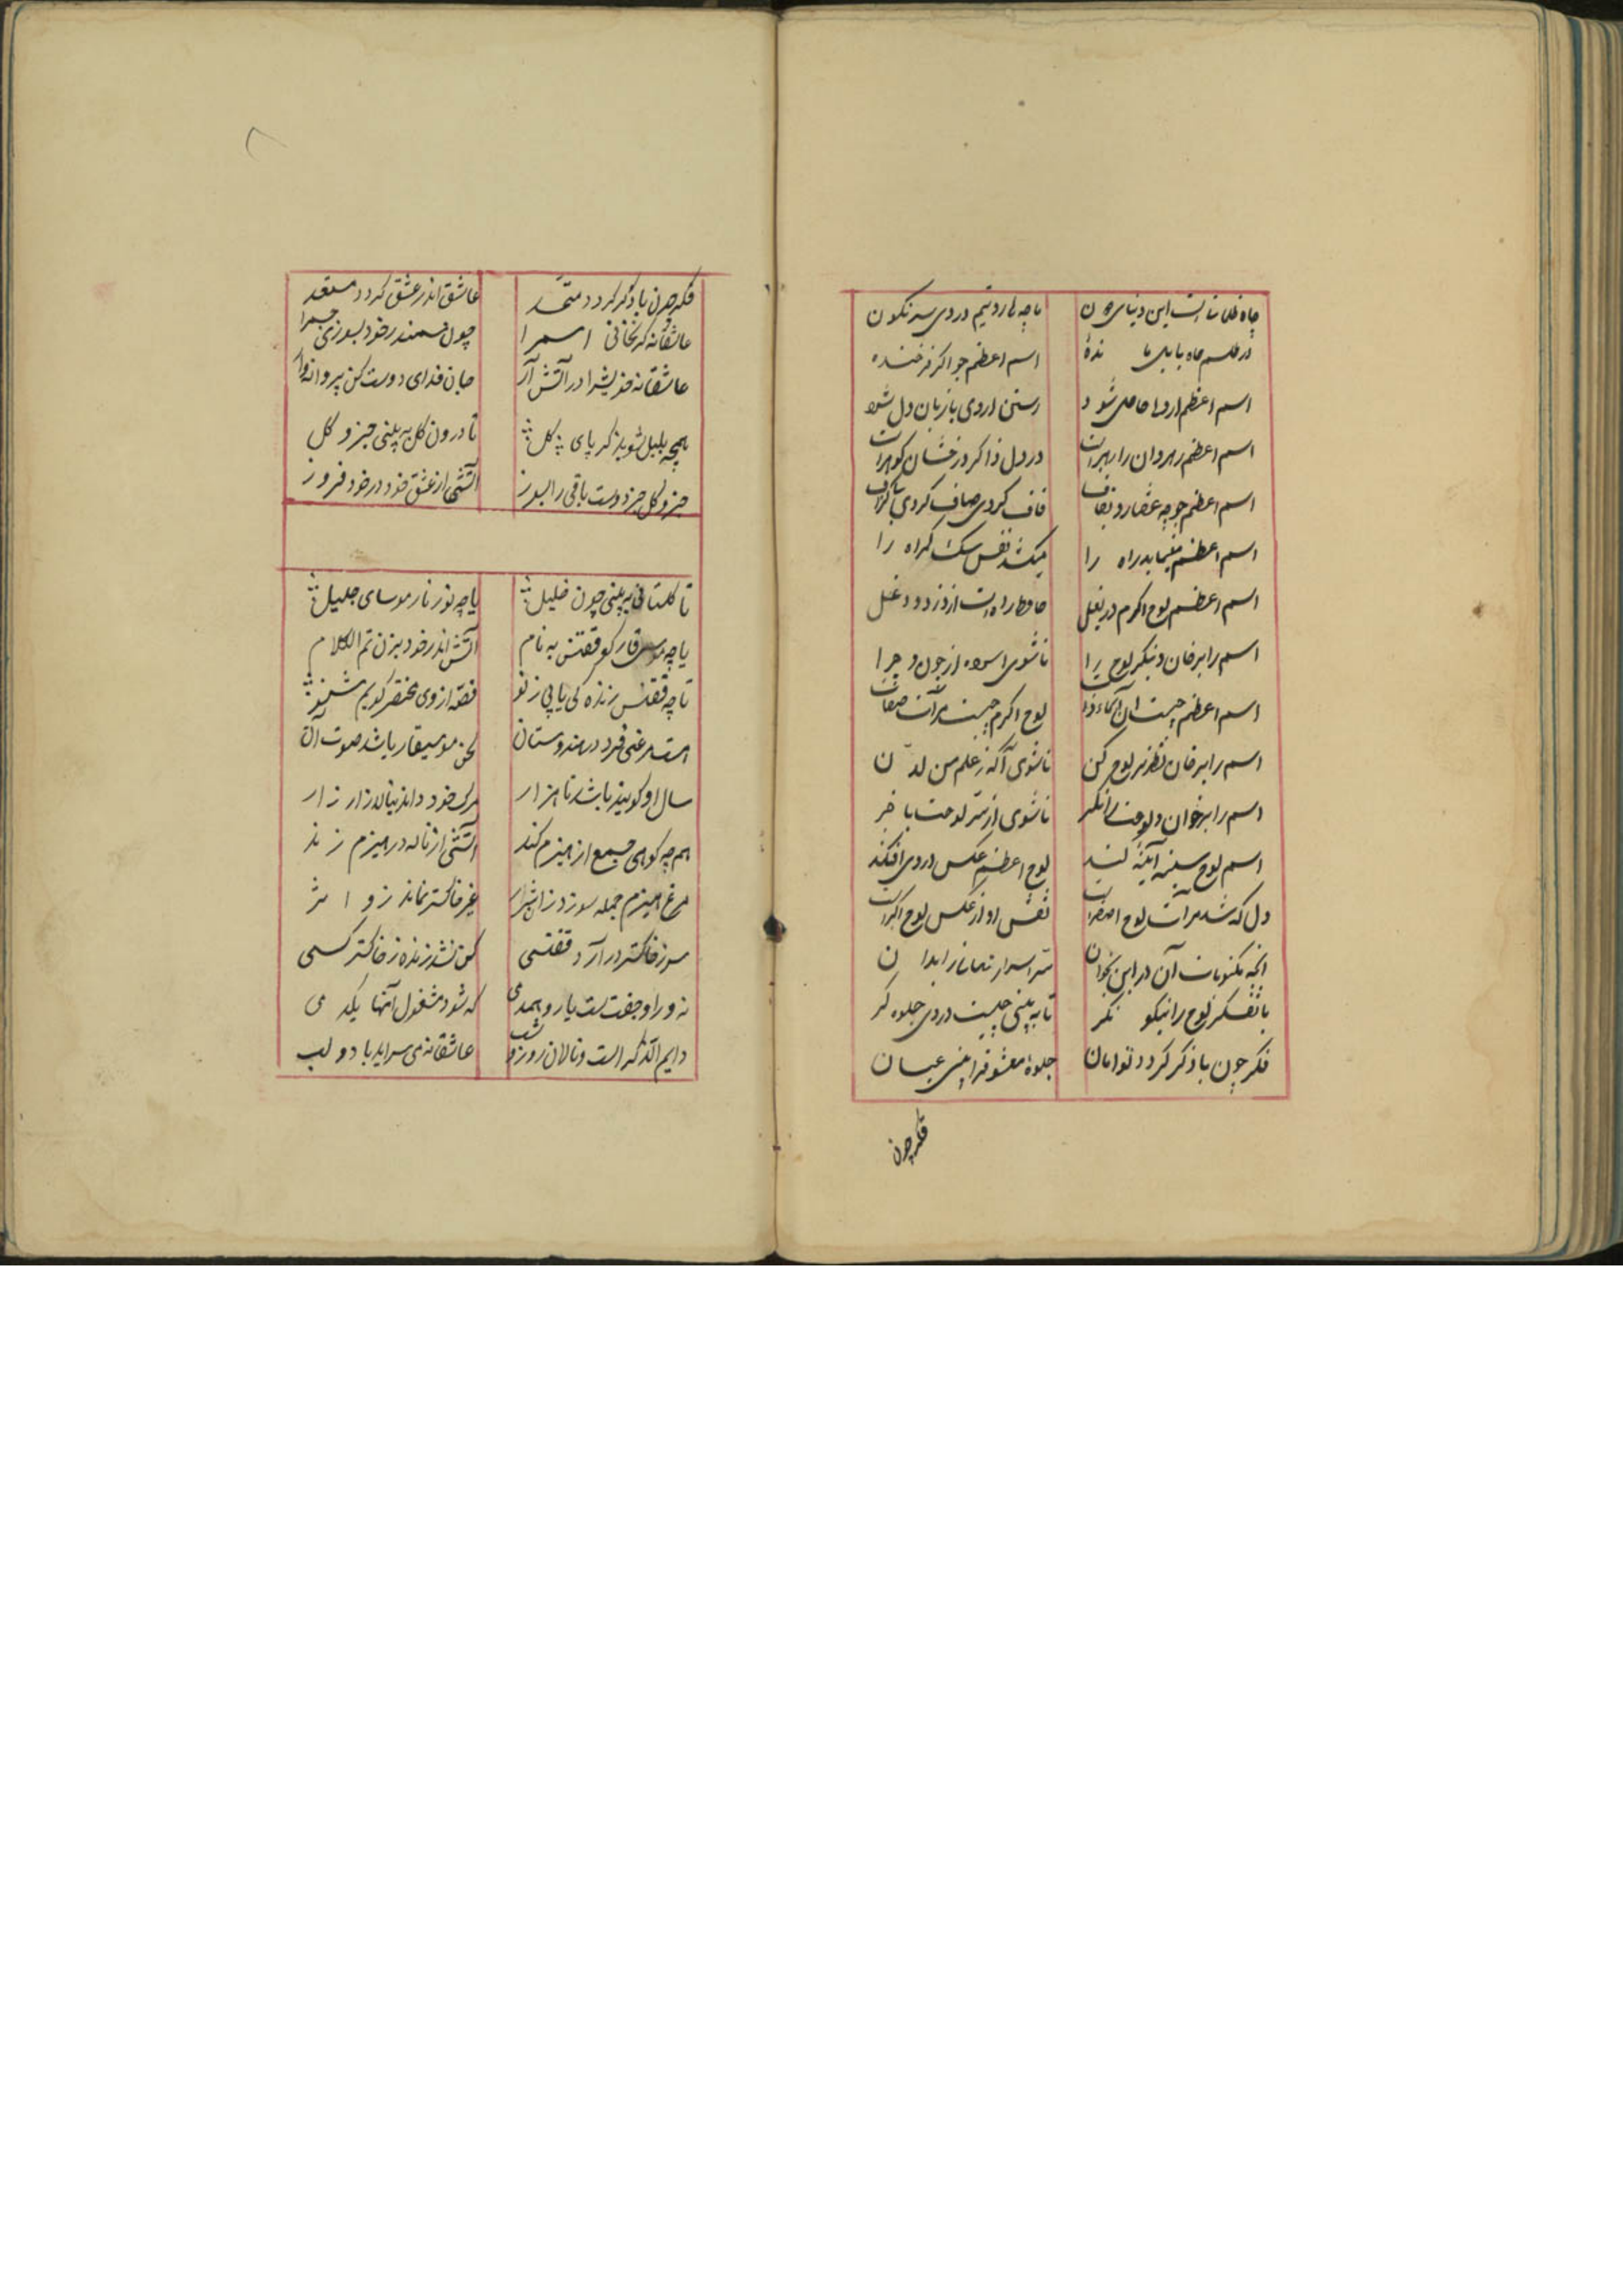 چاه ظلمانیست این دنیای دون
ما چه هاروتیم در وی سرنگون
در طلسم چاه بابل ما نده
اسم اعظم جو اگر فرخنده
اسم اعظم از دعا حاصل شود
رستن از وی با زبان دل شود
اسم اعظم رهروان را رهبراست
در دل ذاکر درخشان گوهراست
اسم اعظم جو چه عنقا رو بقاف
قاف کردی صاف کردی
اسم اعظم مینماید راه را
میکشد نفس سگ گمراه را
اسم اعظم لوح اکرم در بغل
حافظ راه است از دزد و دغل
اسم را برخوان و بنگر لوح را
تا شوی آسوده از چون و چرا
اسم اعظم چیست آن
لوح اکرم چیست مرآت صفات
اسم را برخوان نظر بر لوح کن
تا شوی آگه ز علم من لدن
اسم را برخوان و لوحت را نگر
تا شوی از سر لوحت با خبر
اسم لوح سینه آیینه کند
لوح اعظم عکس در وی افکند
دل که شد مرآت لوح اصغراست
نقش او از عکس لوح اکبراست
آنچه مکنونات آن در این بخوان
سر اسرار نهان را بدان
با تفکر لوح را نیکو نگر
تا به بینی چیست در وی جلوه گر
فکر چون با ذکر گردد توامان
جلوهٔ معشوق را بینی عیان
فکر چون
فکر چون با ذکر گردد متحد
عاشق اندر عشق گردد مستعد
عاشقانه گر بخوانی اسم را
چون سمندر خود بسوزی جسم را
عاشقانه خویش را در آتش آر
جان فدای دوست کن پروانه وار
همچه بلبل شو بذکر پای گل
تا درون گل به بینی جزو کل
جزو کل جز دوست باقی را بسوز
آتشی از عشق خود در خود فروز
تا گلستانی به بینی چون خلیل
یا چه نور نار موسای جلیل
یا چه موسیقار کو ققنس به نام
آتش اندر خود بزن تم الکلام
تا چه ققنس زنده گی یابی ز نو
قصه از وی مختصر گویم شنو
هست مرغی فرد در هندوستان
لحن موسیقار باشد صوت آن
سال او گویند باشد تا هزار
مرگ خود داند بنالد زار زار
هم چه کوهی جمع از هیزم کند
آتشی از ناله در هیزم زند
مرغ هیزم جمله سوزد زان شرار
غیر خاکستر نماند زو اثر
سوز خاکستر در آرد ققنسی
کس نشد زنده ز خاکستر کسی
نه ورا جفت است یار و همدمی
که شود مشغول آنها یکدمی
دایم الذکر است و نالان روز و شب
عاشقانه می سراید با دو لب